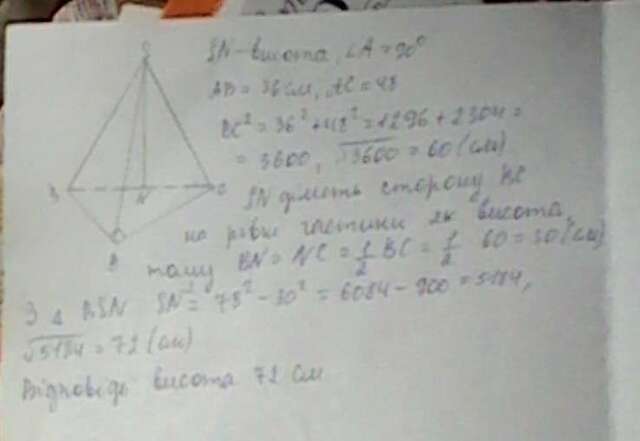 S
SN-висота, ∠A = 90°
AB = 36 см, AC = 48
BC² = 36² + 48² = 1296 + 2304 =
= 3600, √3600 = 60 (см)
B N C
SN ділить сторону BC
на рівні частини як висота,
A
тому BN = NC = 1/2 BC = 1/2 60 = 30 (см)
З Δ BSN SN² = 78² - 30² = 6084 - 900 = 5184,
√5184 = 72 (см)
Відповідь висота 72 см